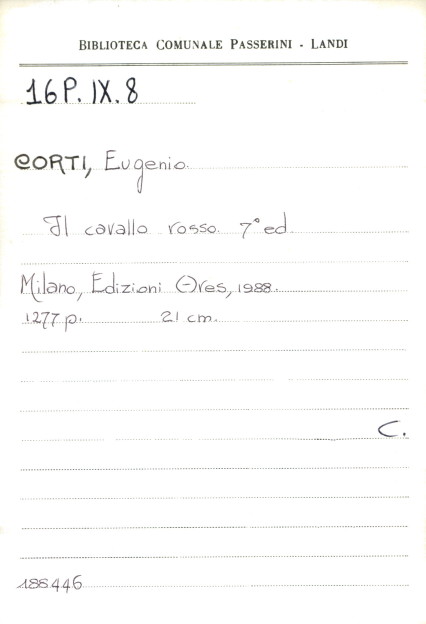 BIBLIOTECA COMUNALE PASSERINI - LANDI
16 P. IX. 8
CORTI, Eugenio.
Il cavallo rosso. 7° ed.
Milano, Edizioni Ares, 1988.
1277 p. 21 cm.
C.
186446